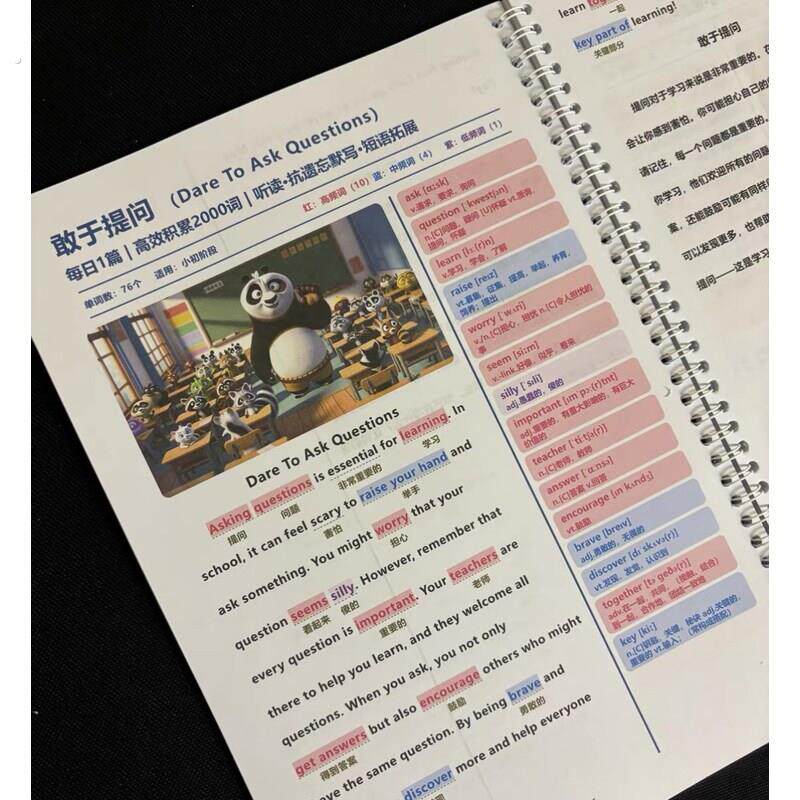 敢于提问 (Dare To Ask Questions)
每日1篇 | 高效积累2000词 | 听读·抗遗忘默写·短语拓展
单词数：76个 适用：小初阶段
红：高频词（10） 蓝：中频词（4） 紫：低频词（1）
Dare To Ask Questions
Asking questions is essential for learning. In
提问 问题 非常重要的 学习
school, it can feel scary to raise your hand and
害怕 举手
ask something. You might worry that your
担心
question seems silly. However, remember that
看起来 傻的
every question is important. Your teachers are
重要的 老师
there to help you learn, and they welcome all
questions. When you ask, you not only
get answers but also encourage others who might
得到答案 鼓励
have the same question. By being brave and
勇敢的
discover more and help everyone
ask [ɑːsk]
v.请求，要求，询问
question [ˈkwestʃən]
n.[C]问题，疑问 [U]怀疑 vt.质询，
提问，怀疑
learn [lɜː(r)n]
v.学习，学会，了解
raise [reɪz]
vt.募集，征集，提高，举起，养育，
饲养；提出
worry [ˈwʌri]
v./n.[C]担心，担忧 n.[C]令人担忧的
事
seem [siːm]
v.-link.好像，似乎，看来
silly [ˈsɪli]
adj.愚蠢的，傻的
important [ɪmˈpɔː(r)tnt]
adj.重要的，有重大影响的，有巨大
价值的
teacher [ˈtiːtʃə(r)]
n.[C]老师，教师
answer [ˈɑːnsə]
n.[C]答案 v.回答
encourage [ɪnˈkʌrɪdʒ]
vt.鼓励
brave [breɪv]
adj.勇敢的，无畏的
discover [dɪˈskʌvə(r)]
vt.发现，发觉，认识到
together [təˈɡeðə(r)]
adv.在一起，共同，（接触、结合）
到一起，合作地，团结一致地
key [kiː]
n.[C]钥匙，关键，秘诀 adj.关键的，
重要的 vt.输入；（常构成搭配）
learn
一起
key part of learning!
关键部分
敢于提问
提问对于学习来说是非常重要的。在
会让你感到害怕。你可能担心自己的
请记住，每一个问题都是重要的。
你学习，他们欢迎所有的问题
案，还能鼓励可能有同样
可以发现更多，也帮助
提问——这是学习